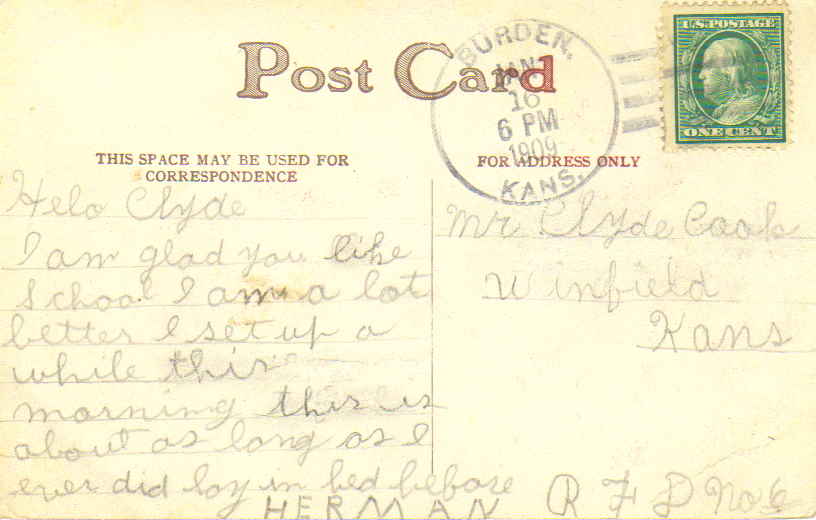 Post Card
BURDEN,
JAN
16
6 PM
1909
KANS.
U.S. POSTAGE
ONE CENT
THIS SPACE MAY BE USED FOR
CORRESPONDENCE
FOR ADDRESS ONLY
Helo Clyde
I am glad you like
school I am a lot
better I set up a
while this
morning this is
about as long as I
ever did lay in bed before
HERMAN
Mr Clyde Cook
Winfield
Kans
R F D No 6